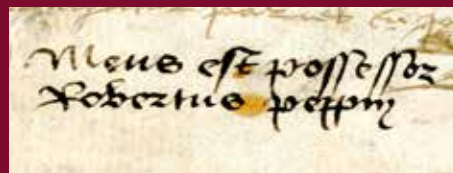 Meus est possessor
Robertus peppin